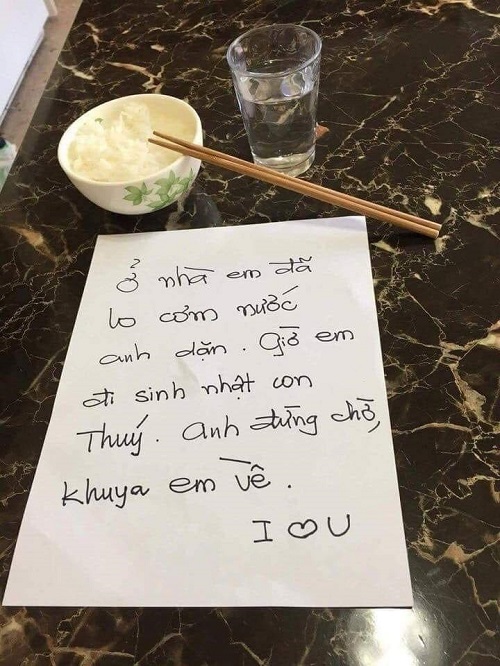 Ở nhà em đã
lo cơm nước
anh dặn. Giờ em
đi sinh nhật con
Thuý. Anh đừng chờ,
khuya em về.
I ♡ U